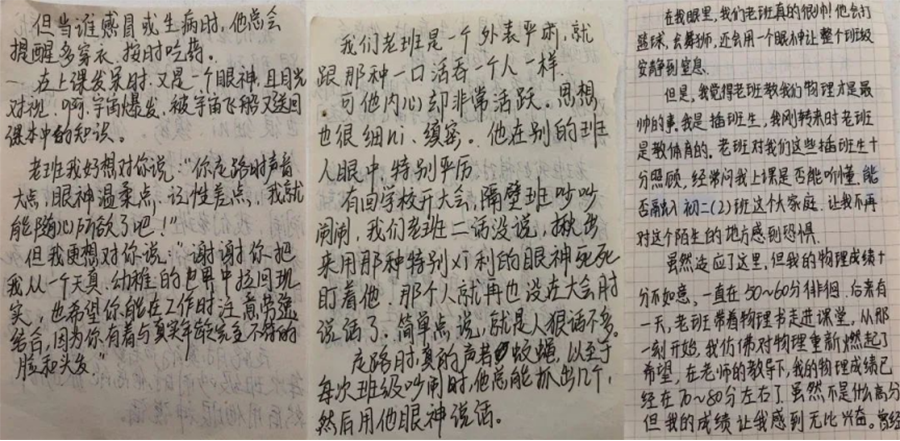 但当谁感冒或生病时，他总会
提醒多穿衣、按时吃药。
在上课发呆时，又是一个眼神，且目光
对视，啊，宇宙爆发，被宇宙飞船又送回
课本中的知识。
老班我好想对你说：“你走路时声音
大点，眼神温柔点，记性差点，我就
能随心所欲了吧！”
但我更想对你说：“谢谢你把
我从一个天真、幼稚的世界中拉回现
实，也希望你能在工作时注意劳逸
结合，因为你有着与真实年龄完全不符的
脸和头发”
我们老班是一个外表严肃，就
跟那种一口活吞一个人一样.
可他内心却非常活跃。思想
也很细心、缜密。他在别的班
人眼中，特别严厉
有回学校开大会，隔壁班吵吵
闹闹，我们老班二话没说，揪出
来用那种特别犀利的眼神死死
盯着他，那个人就再也没在大会时
说话了。简单点说，就是人狠话不多。
走路时，真的声若蚊蝇，以至于
每次班级吵闹时，他总能抓出几个，
然后用他眼神说话。
在我眼里，我们老班真的很帅！他会打
篮球，会舞狮，还会用一个眼神让整个班级
安静到窒息.
但是，我觉得老班教我们物理才是最
帅的事，我是插班生，我刚转来时老班
是教体育的。老班对我们这些插班生十
分照顾，经常问我上课是否能听懂，能
否融入初二(2)班这个大家庭.让我不再
对这个陌生的地方感到恐惧.
虽然适应了这里，但我的物理成绩十
分不如意，一直在50~60分徘徊.后来有
一天，老班带着物理书走进课堂，从那
一刻开始，我仿佛对物理重新燃起了
希望，在老师的教导下，我的物理成绩已
经在70~80分左右了.虽然不是什么高分
但我的成绩让我感到无比兴奋。曾经